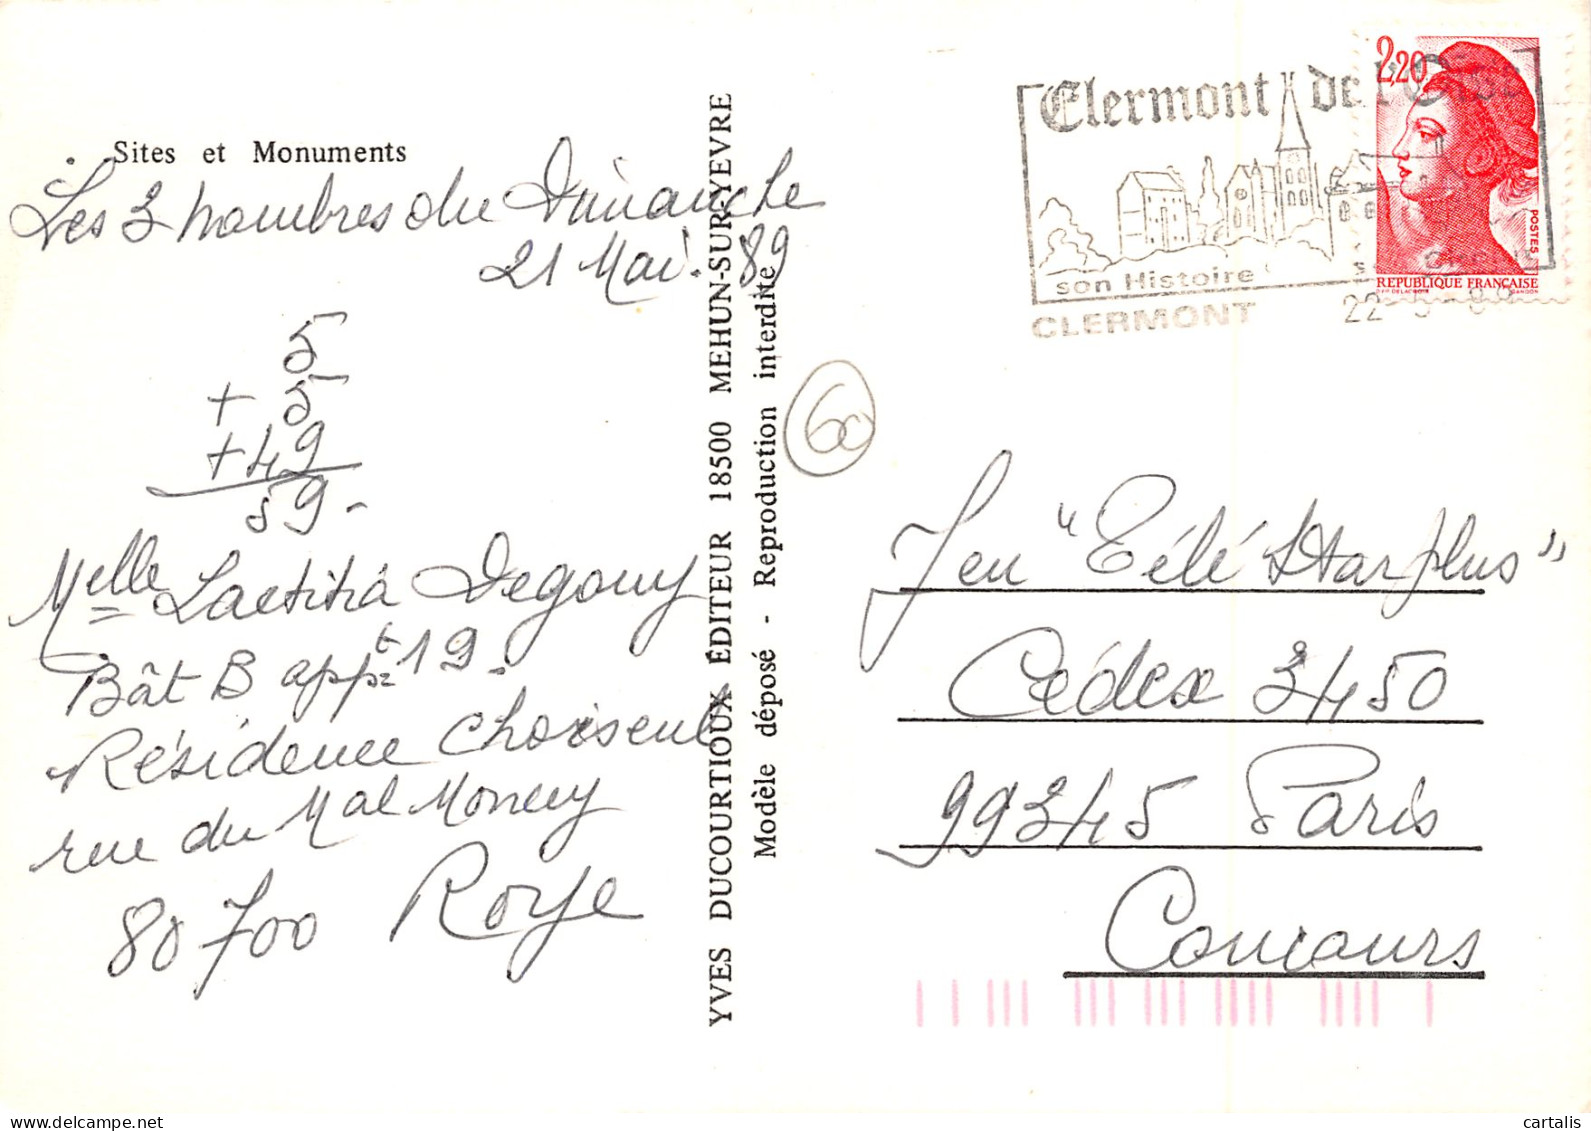 Sites et Monuments
Les 3 nombres du Dimanche
21 Mai. 89
5
+ 5
+ 49
59.-
Melle Laetitia Degouy
Bât B appt 19.
Résidence Choiseul
rue du Mal Moncey
80700 Roye
YVES DUCOURTIOUX ÉDITEUR 18500 MEHUN-SUR-YEVRE
Modèle déposé - Reproduction interdite
60
Clermont de l'Oise
son Histoire
CLERMONT
22-5-89
2,20
POSTES
REPUBLIQUE FRANÇAISE
Jeu "Télé Star plus"
Cédex 3450
99345 Paris
Concours
cartalis